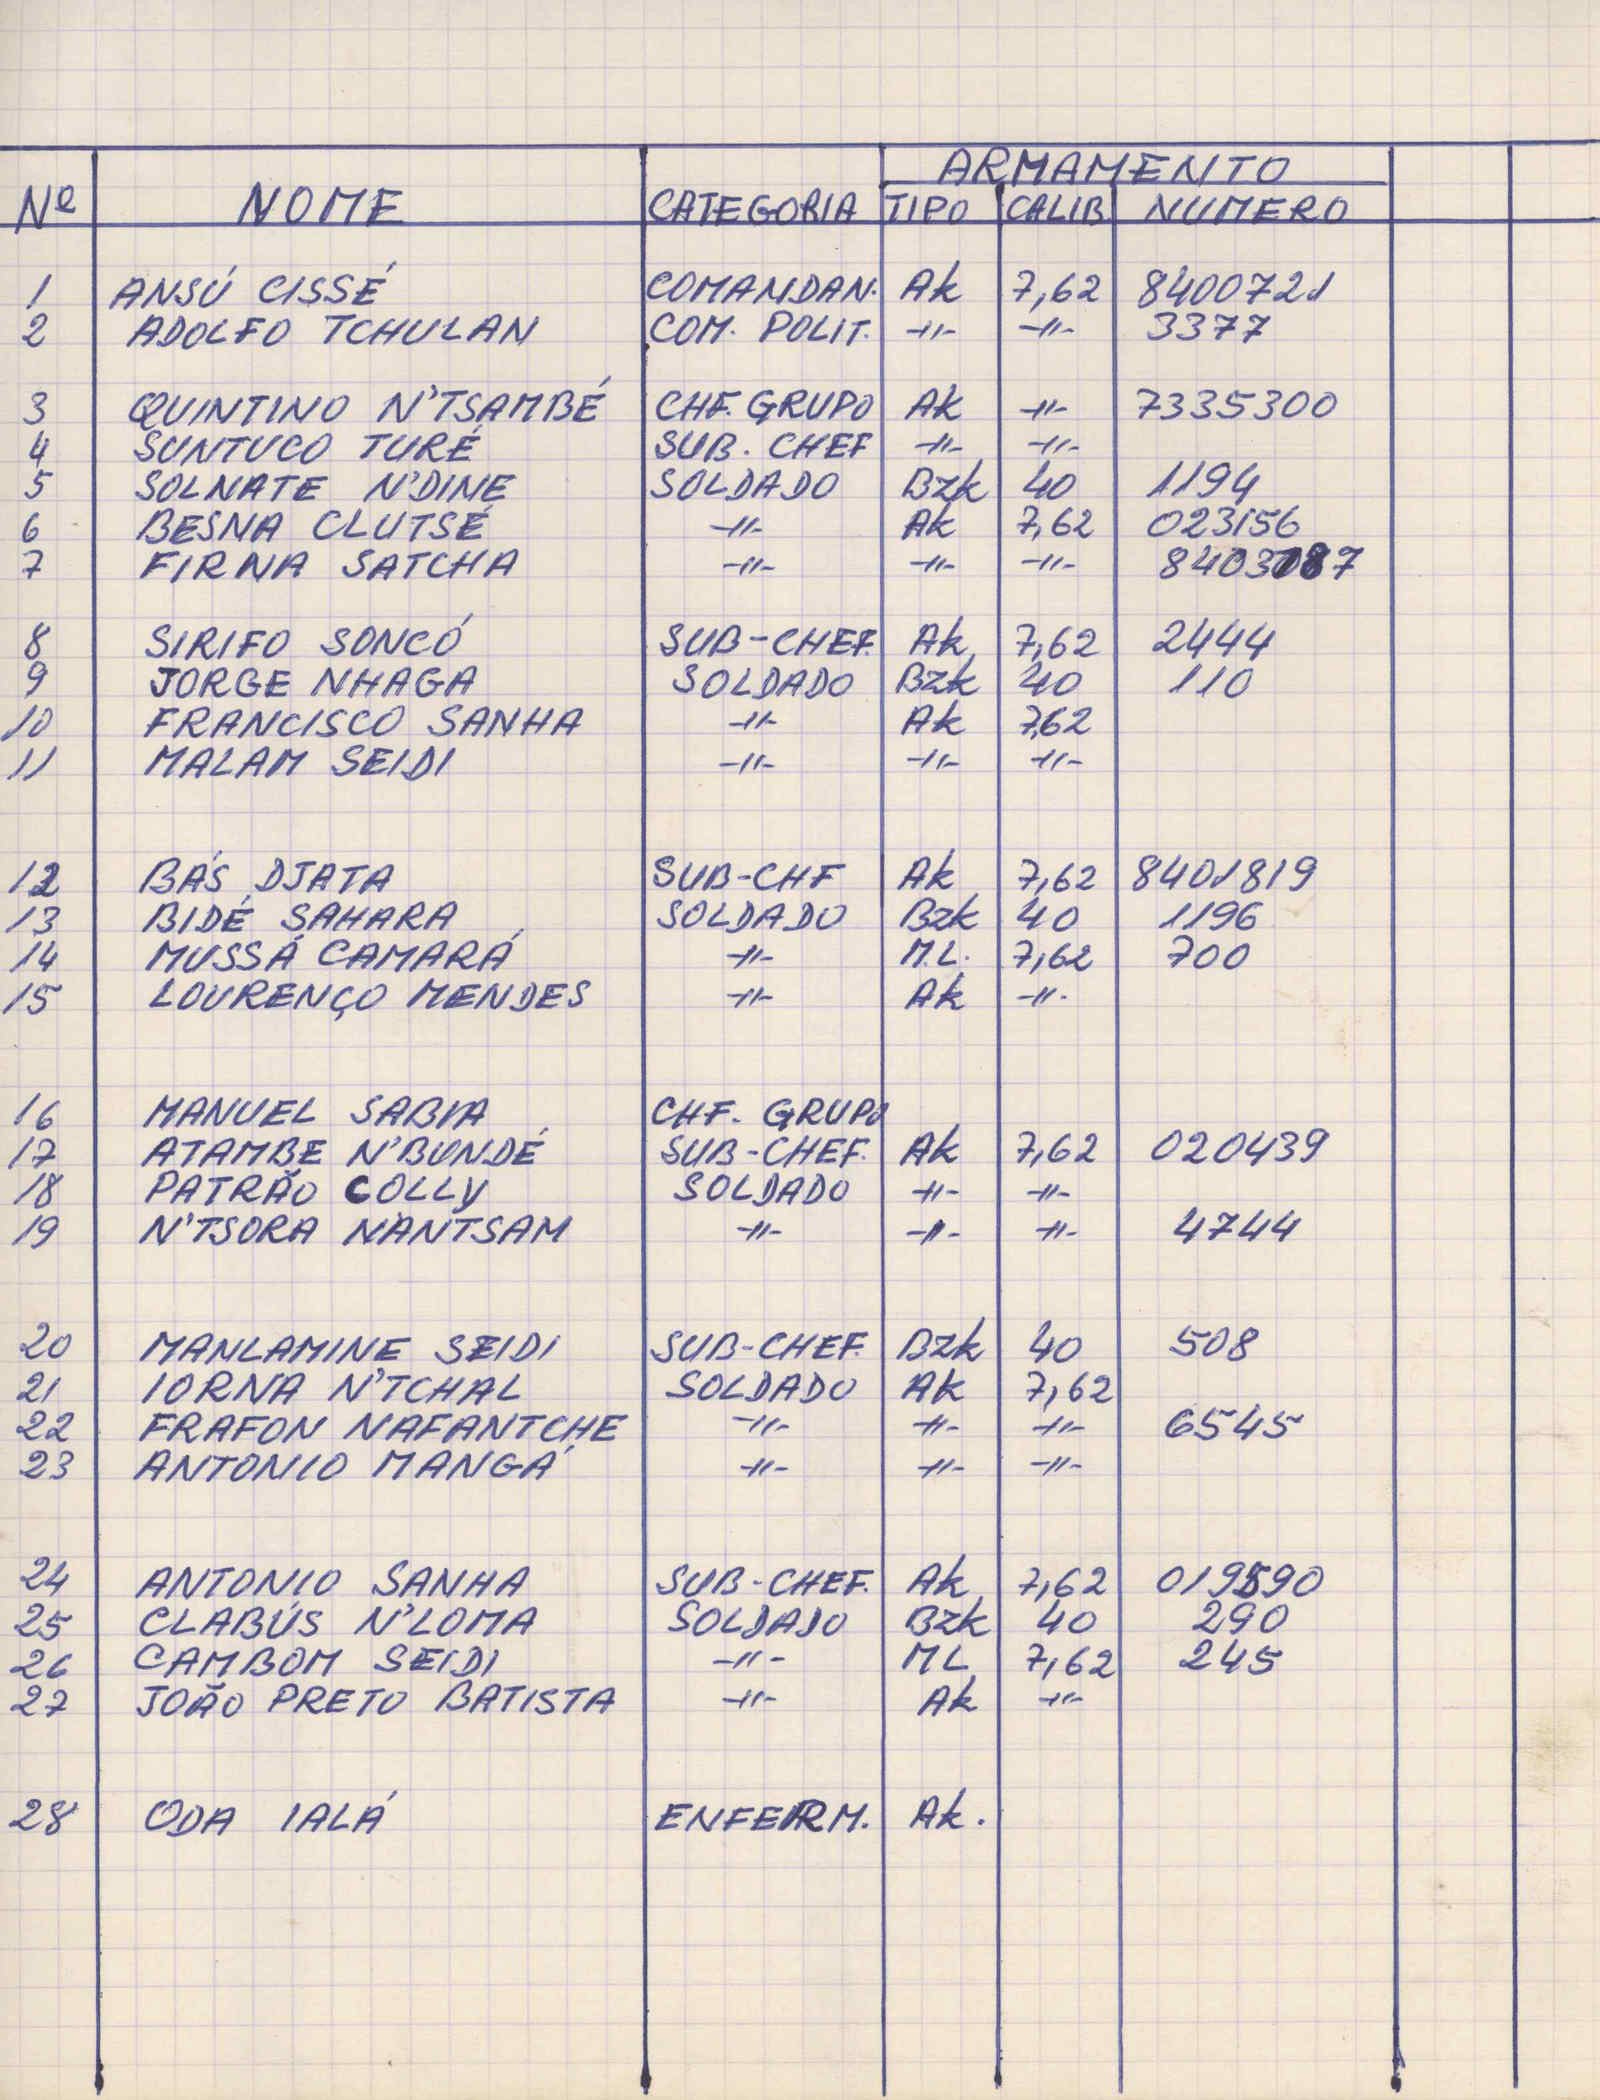 ARMAMENTO
Nº NOME CATEGORIA TIPO CALIB. NUMERO
1 ANSÚ CISSÉ COMANDAN. Ak 7,62 8400721
2 ADOLFO TCHULAN COM. POLIT. -"- -"- 3377
3 QUINTINO N'TSAMBÉ CHF. GRUPO Ak -"- 7335300
4 SUNTUCO TURÉ SUB. CHEF -"- -"-
5 SOLNATE N'DINE SOLDADO Bzk 40 1194
6 BESNA CLUTSÉ -"- Ak 7,62 023156
7 FIRNA SATCHA -"- -"- -"-
8 SIRIFO SONCÓ SUB-CHEF. Ak 7,62 2444
9 JORGE NHAGA SOLDADO Bzk 40 110
10 FRANCISCO SANHA -"- Ak 7,62
11 MALAM SEIDI -"- -"- -"-
12 BÁS DJATA SUB-CHF Ak 7,62 8401819
13 BIDÉ SAHARA SOLDADO Bzk 40 1196
14 MUSSÁ CAMARÁ -"- M.L. 7,62 700
15 LOURENÇO MENDES -"- Ak -"-
16 MANUEL SABIA CHF. GRUPO
17 ATAMBE N'BUNDÉ SUB-CHEF. Ak 7,62 020439
18 PATRÃO COLLY SOLDADO -"- -"-
19 N'TSORA NANTSAM -"- -"- -"- 4744
20 MANLAMINE SEIDI SUB-CHEF. Bzk 40 508
21 IORNA N'TCHAL SOLDADO Ak 7,62
22 FRAFON NAFANTCHE -"- -"- -"- 6545
23 ANTONIO MANGÁ -"- -"- -"-
24 ANTONIO SANHA SUB-CHEF. Ak 7,62
25 CLABÚS N'LOMA SOLDADO Bzk 40 290
26 CAMBOM SEIDI -"- ML 7,62 245
27 JOÃO PRETO BATISTA -"- Ak -"-
28 ODA IALÁ ENFERM. Ak.